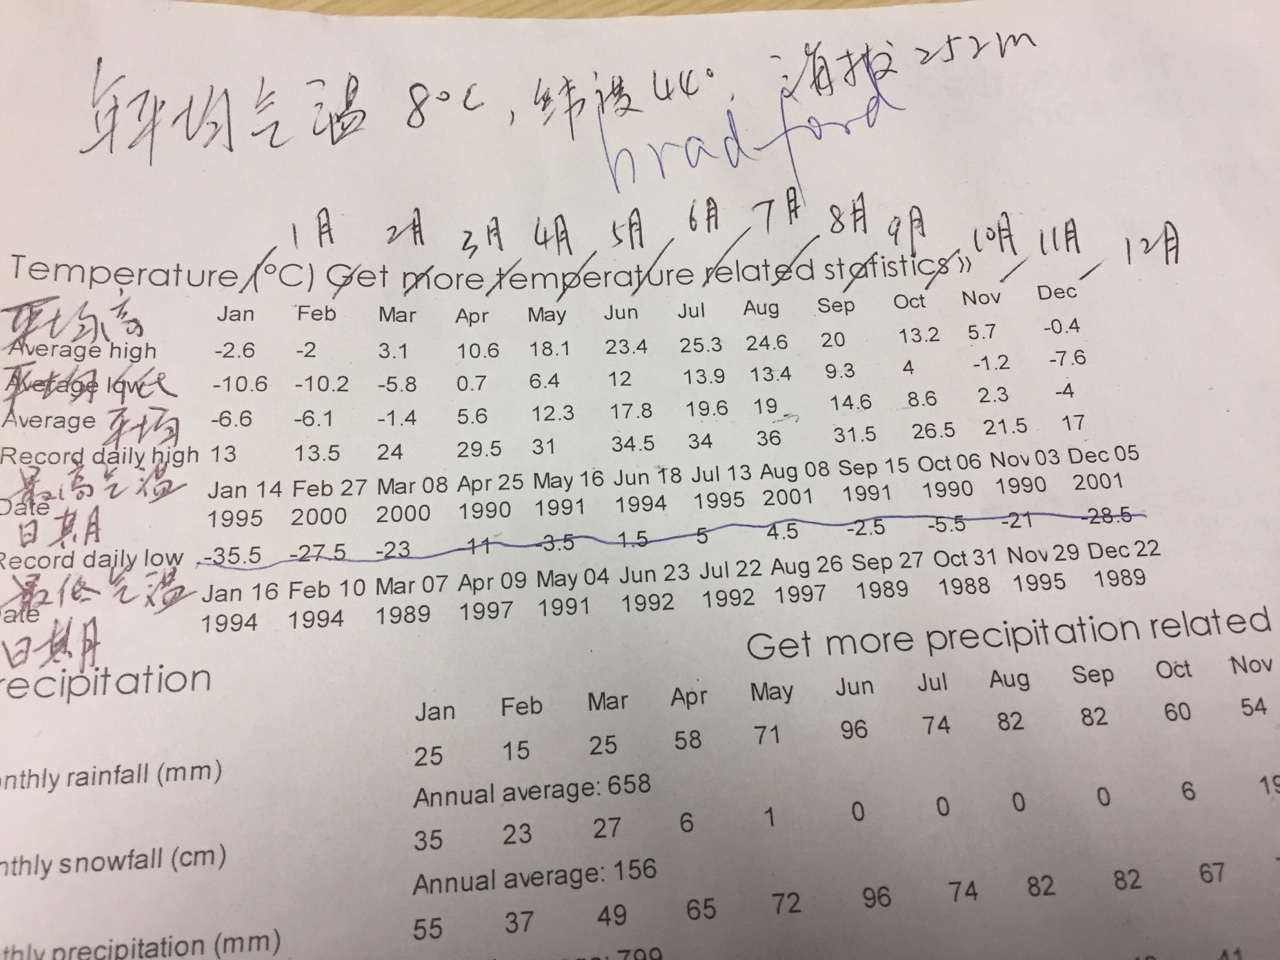 年平均气温 8°C, 纬度 44°, 海拔 252m
bradford
1月 2月 3月 4月 5月 6月 7月 8月 9月 10月 11月 12月
Temperature (°C) Get more temperature related statistics »
平均高
Jan Feb Mar Apr May Jun Jul Aug Sep Oct Nov Dec
Average high -2.6 -2 3.1 10.6 18.1 23.4 25.3 24.6 20 13.2 5.7 -0.4
平均低
Average low -10.6 -10.2 -5.8 0.7 6.4 12 13.9 13.4 9.3 4 -1.2 -7.6
Average 平均 -6.6 -6.1 -1.4 5.6 12.3 17.8 19.6 19 14.6 8.6 2.3 -4
Record daily high 13 13.5 24 29.5 31 34.5 34 36 31.5 26.5 21.5 17
最高气温
Date Jan 14 Feb 27 Mar 08 Apr 25 May 16 Jun 18 Jul 13 Aug 08 Sep 15 Oct 06 Nov 03 Dec 05
日期 1995 2000 2000 1990 1991 1994 1995 2001 1991 1990 1990 2001
Record daily low -35.5 -27.5 -23 -11 -3.5 1.5 5 4.5 -2.5 -5.5 -21 -28.5
最低气温
ate Jan 16 Feb 10 Mar 07 Apr 09 May 04 Jun 23 Jul 22 Aug 26 Sep 27 Oct 31 Nov 29 Dec 22
日期 1994 1994 1989 1997 1991 1992 1992 1997 1989 1988 1995 1989
recipitation Get more precipitation related
Jan Feb Mar Apr May Jun Jul Aug Sep Oct Nov
nthly rainfall (mm) 25 15 25 58 71 96 74 82 82 60 54
Annual average: 658
nthly snowfall (cm) 35 23 27 6 1 0 0 0 0 6 19
Annual average: 156
thly precipitation (mm) 55 37 49 65 72 96 74 82 82 67
799